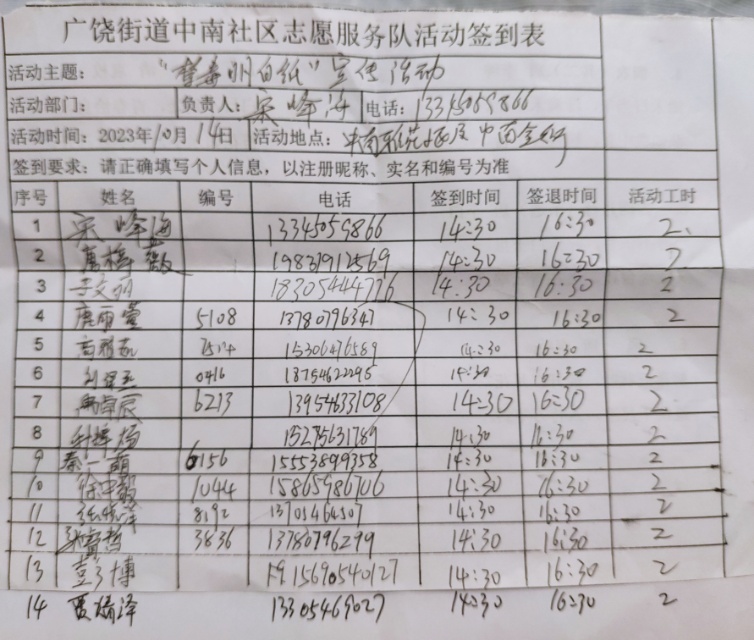 广饶街道中南社区志愿服务队活动签到表
活动主题: "禁毒明白纸"宣传活动
活动部门: 负责人: 宋峰海 电话: 13345059866
活动时间: 2023年10月14日 活动地点:
签到要求: 请正确填写个人信息,以注册昵称、实名和编号为准
序号 姓名 编号 电话 签到时间 签退时间 活动工时
1 宋峰海 13345059866 14:30 16:30 2
2 14:30 16:30 2
3 18305444776 14:30 16:30 2
4 唐丽萱 5108 13780796347 14:30 16:30 2
5 15306476589 14:30 16:30 2
6 0416 18754622295 14:30 16:30 2
7 6213 13954633108 14:30 16:30 2
8 15275631789 14:30 16:30 2
9 秦一萌 6156 15553899358 14:30 16:30 2
10 徐中毅 1044 15865986706 14:30 16:30 2
11 8192 13705464507 14:30 16:30 2
12 3836 13780796299 14:30 16:30 2
13 15690540127 14:30 16:30 2
14 13305469027 14:30 16:30 2